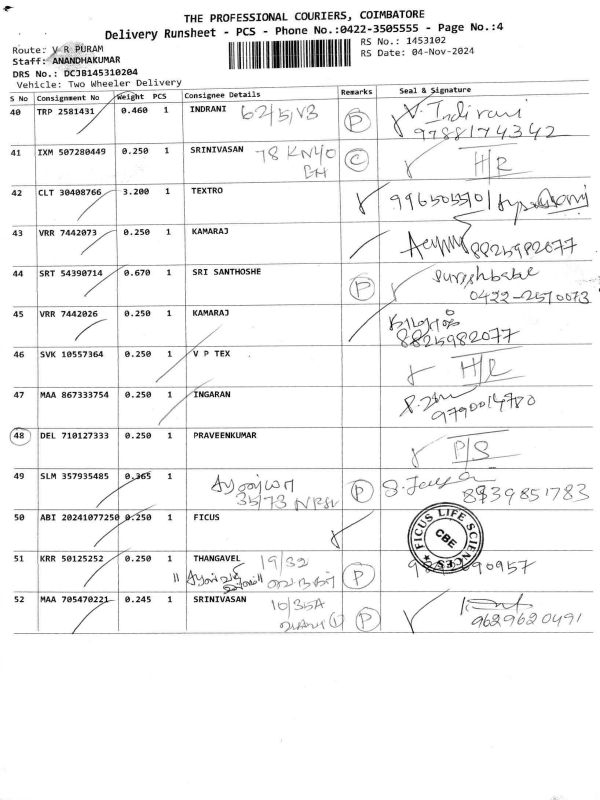 THE PROFESSIONAL COURIERS, COIMBATORE
Delivery Runsheet - PCS - Phone No.:0422-3505555 - Page No.:4
Route: V R PURAM
RS No.: 1453102
Staff: ANANDHAKUMAR
RS Date: 04-Nov-2024
DRS No.: DCJB145310204
Vehicle: Two Wheeler Delivery
S No Consignment No Weight PCS Consignee Details Remarks Seal & Signature
40 TRP 2581431 0.460 1 INDRANI 62/5/VB P V. Indirani
9788174342
41 IXM 507280449 0.250 1 SRINIVASAN 78 C H/R
42 CLT 30408766 3.200 1 TEXTRO
43 VRR 7442073 0.250 1 KAMARAJ 8825982077
44 SRT 54390714 0.670 1 SRI SANTHOSHE P
0422-2570073
45 VRR 7442026 0.250 1 KAMARAJ
8825982077
46 SVK 10557364 0.250 1 V P TEX H/R
47 MAA 867333754 0.250 1 INGARAN
9790014780
48 DEL 710127333 0.250 1 PRAVEENKUMAR P/S
49 SLM 357935485 0.365 1 P
35/73 8939851783
50 ABI 20241077250 0.250 1 FICUS
FICUS LIFE SCIENCES
CBE
51 KRR 50125252 0.250 1 THANGAVEL 19/32 P
52 MAA 705470221 0.245 1 SRINIVASAN 10/35A P
9629620491